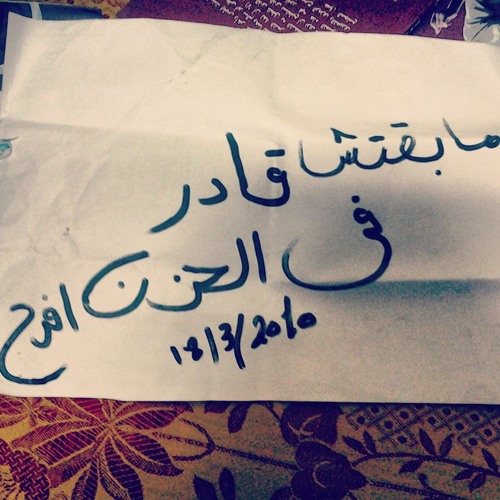 ما بقتش قادر
فى الحزن افرح
18/3/2010